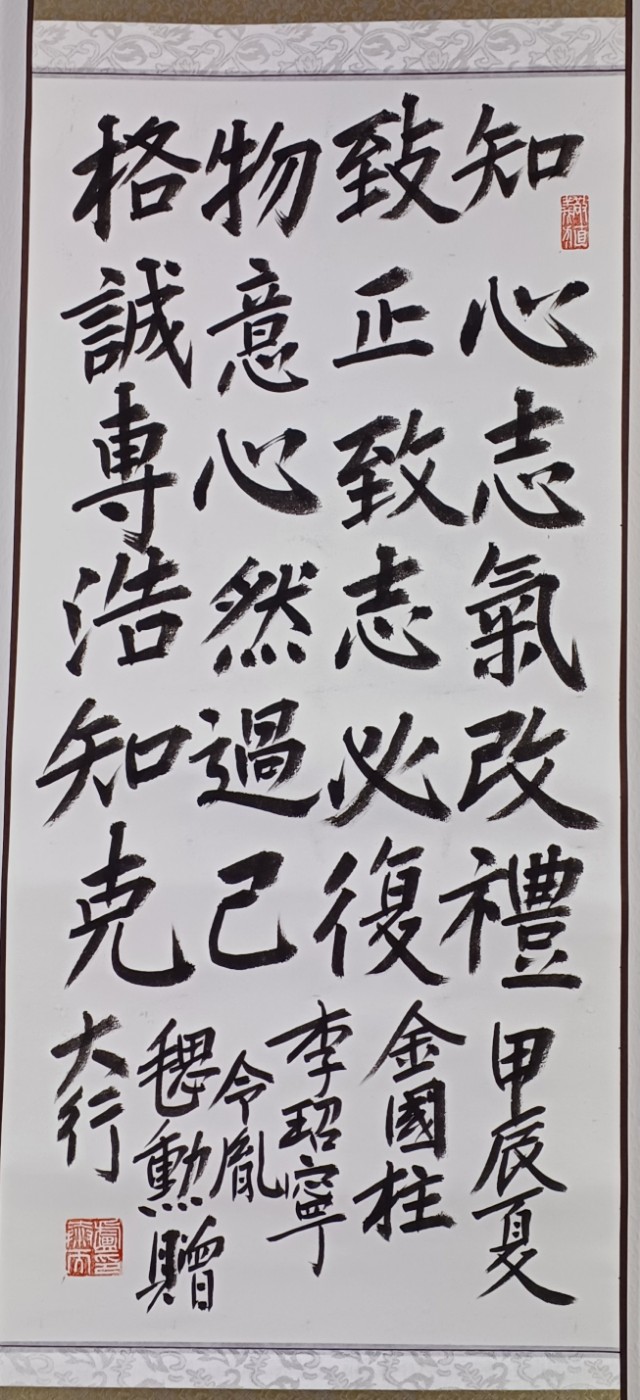 格物致知
誠意正心
專心致志
浩然志氣
知過必改
克己復禮
甲辰夏
金國柱
李玿寧
令胤
勳贈
大行